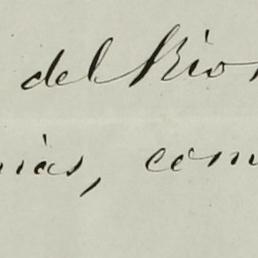 del Rio
nias, com